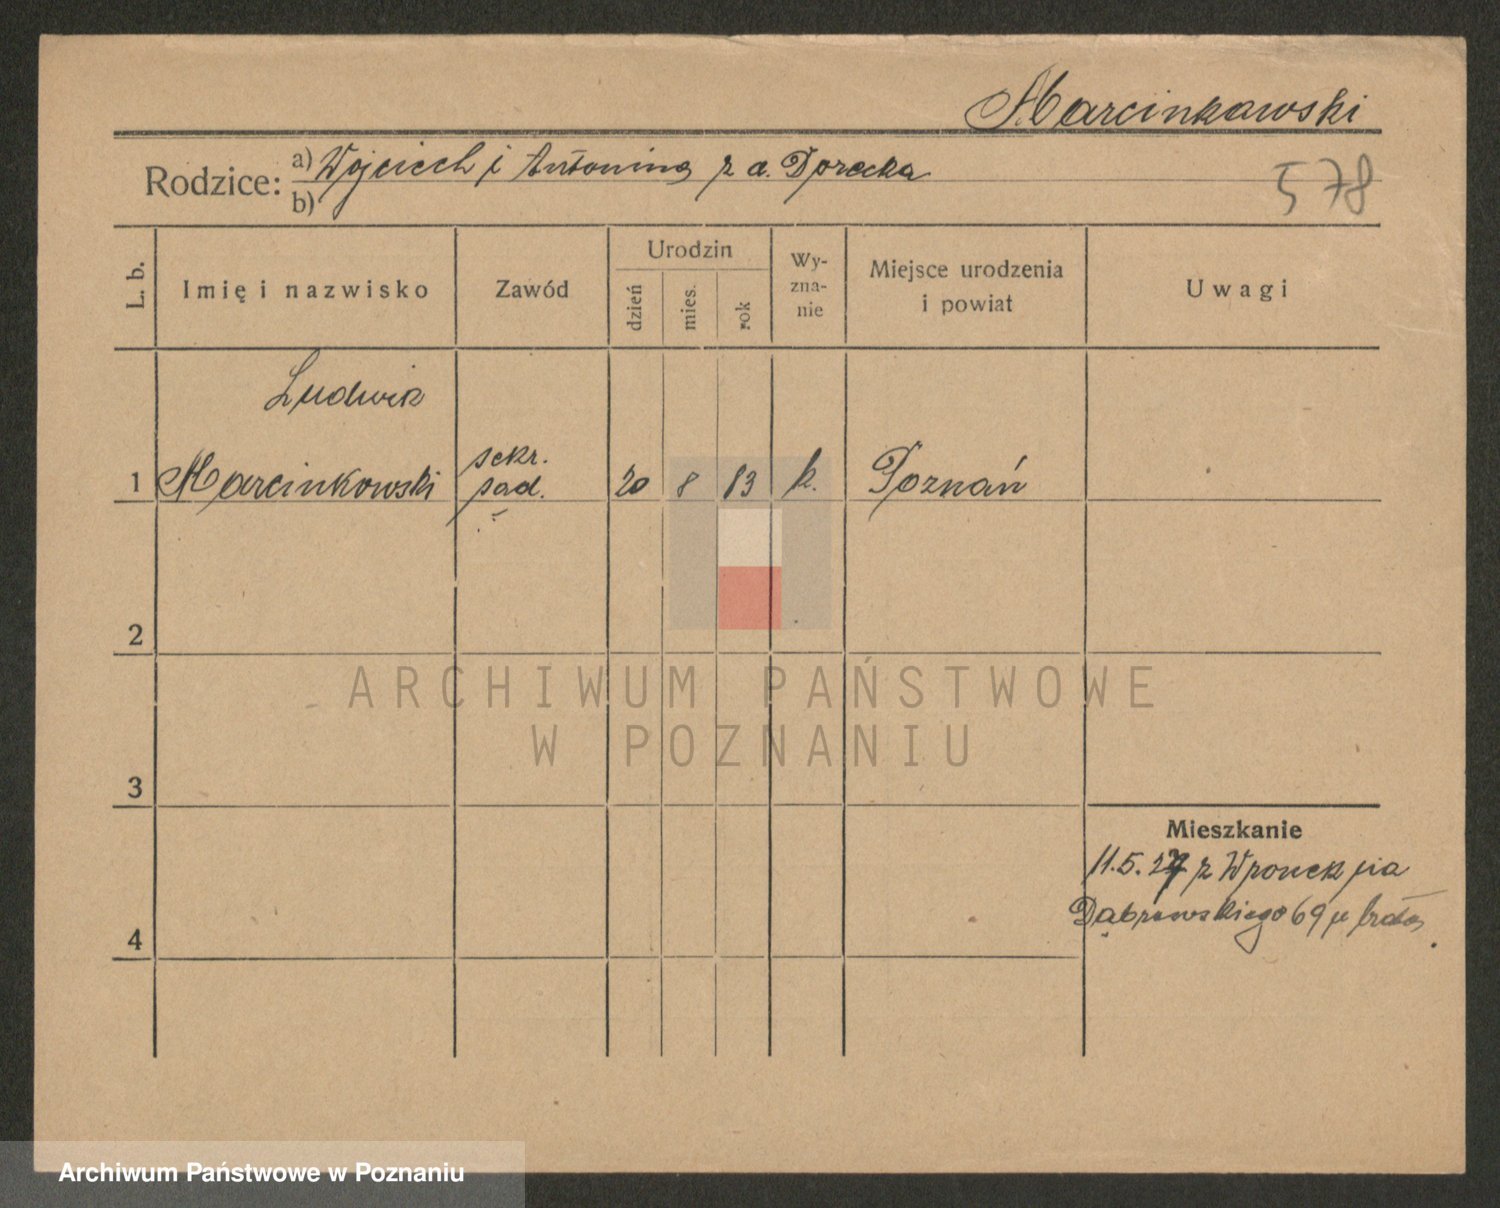 Marcinkowski
Rodzice: a) Wojciech i Antonina z d. Dorecka
b)
578
L. b.
Imię i nazwisko
Zawód
Urodzin
dzień
mies.
rok
Wy-
zna-
nie
Miejsce urodzenia
i powiat
Uwagi
Ludwik
1 Marcinkowski
sekr.
sąd.
20 8 83 k. Poznań
2
3
4
Mieszkanie
11.5.27 z Wronek na
Dąbrowskiego 69 u brata
ARCHIWUM PAŃSTWOWE
W POZNANIU
Archiwum Państwowe w Poznaniu